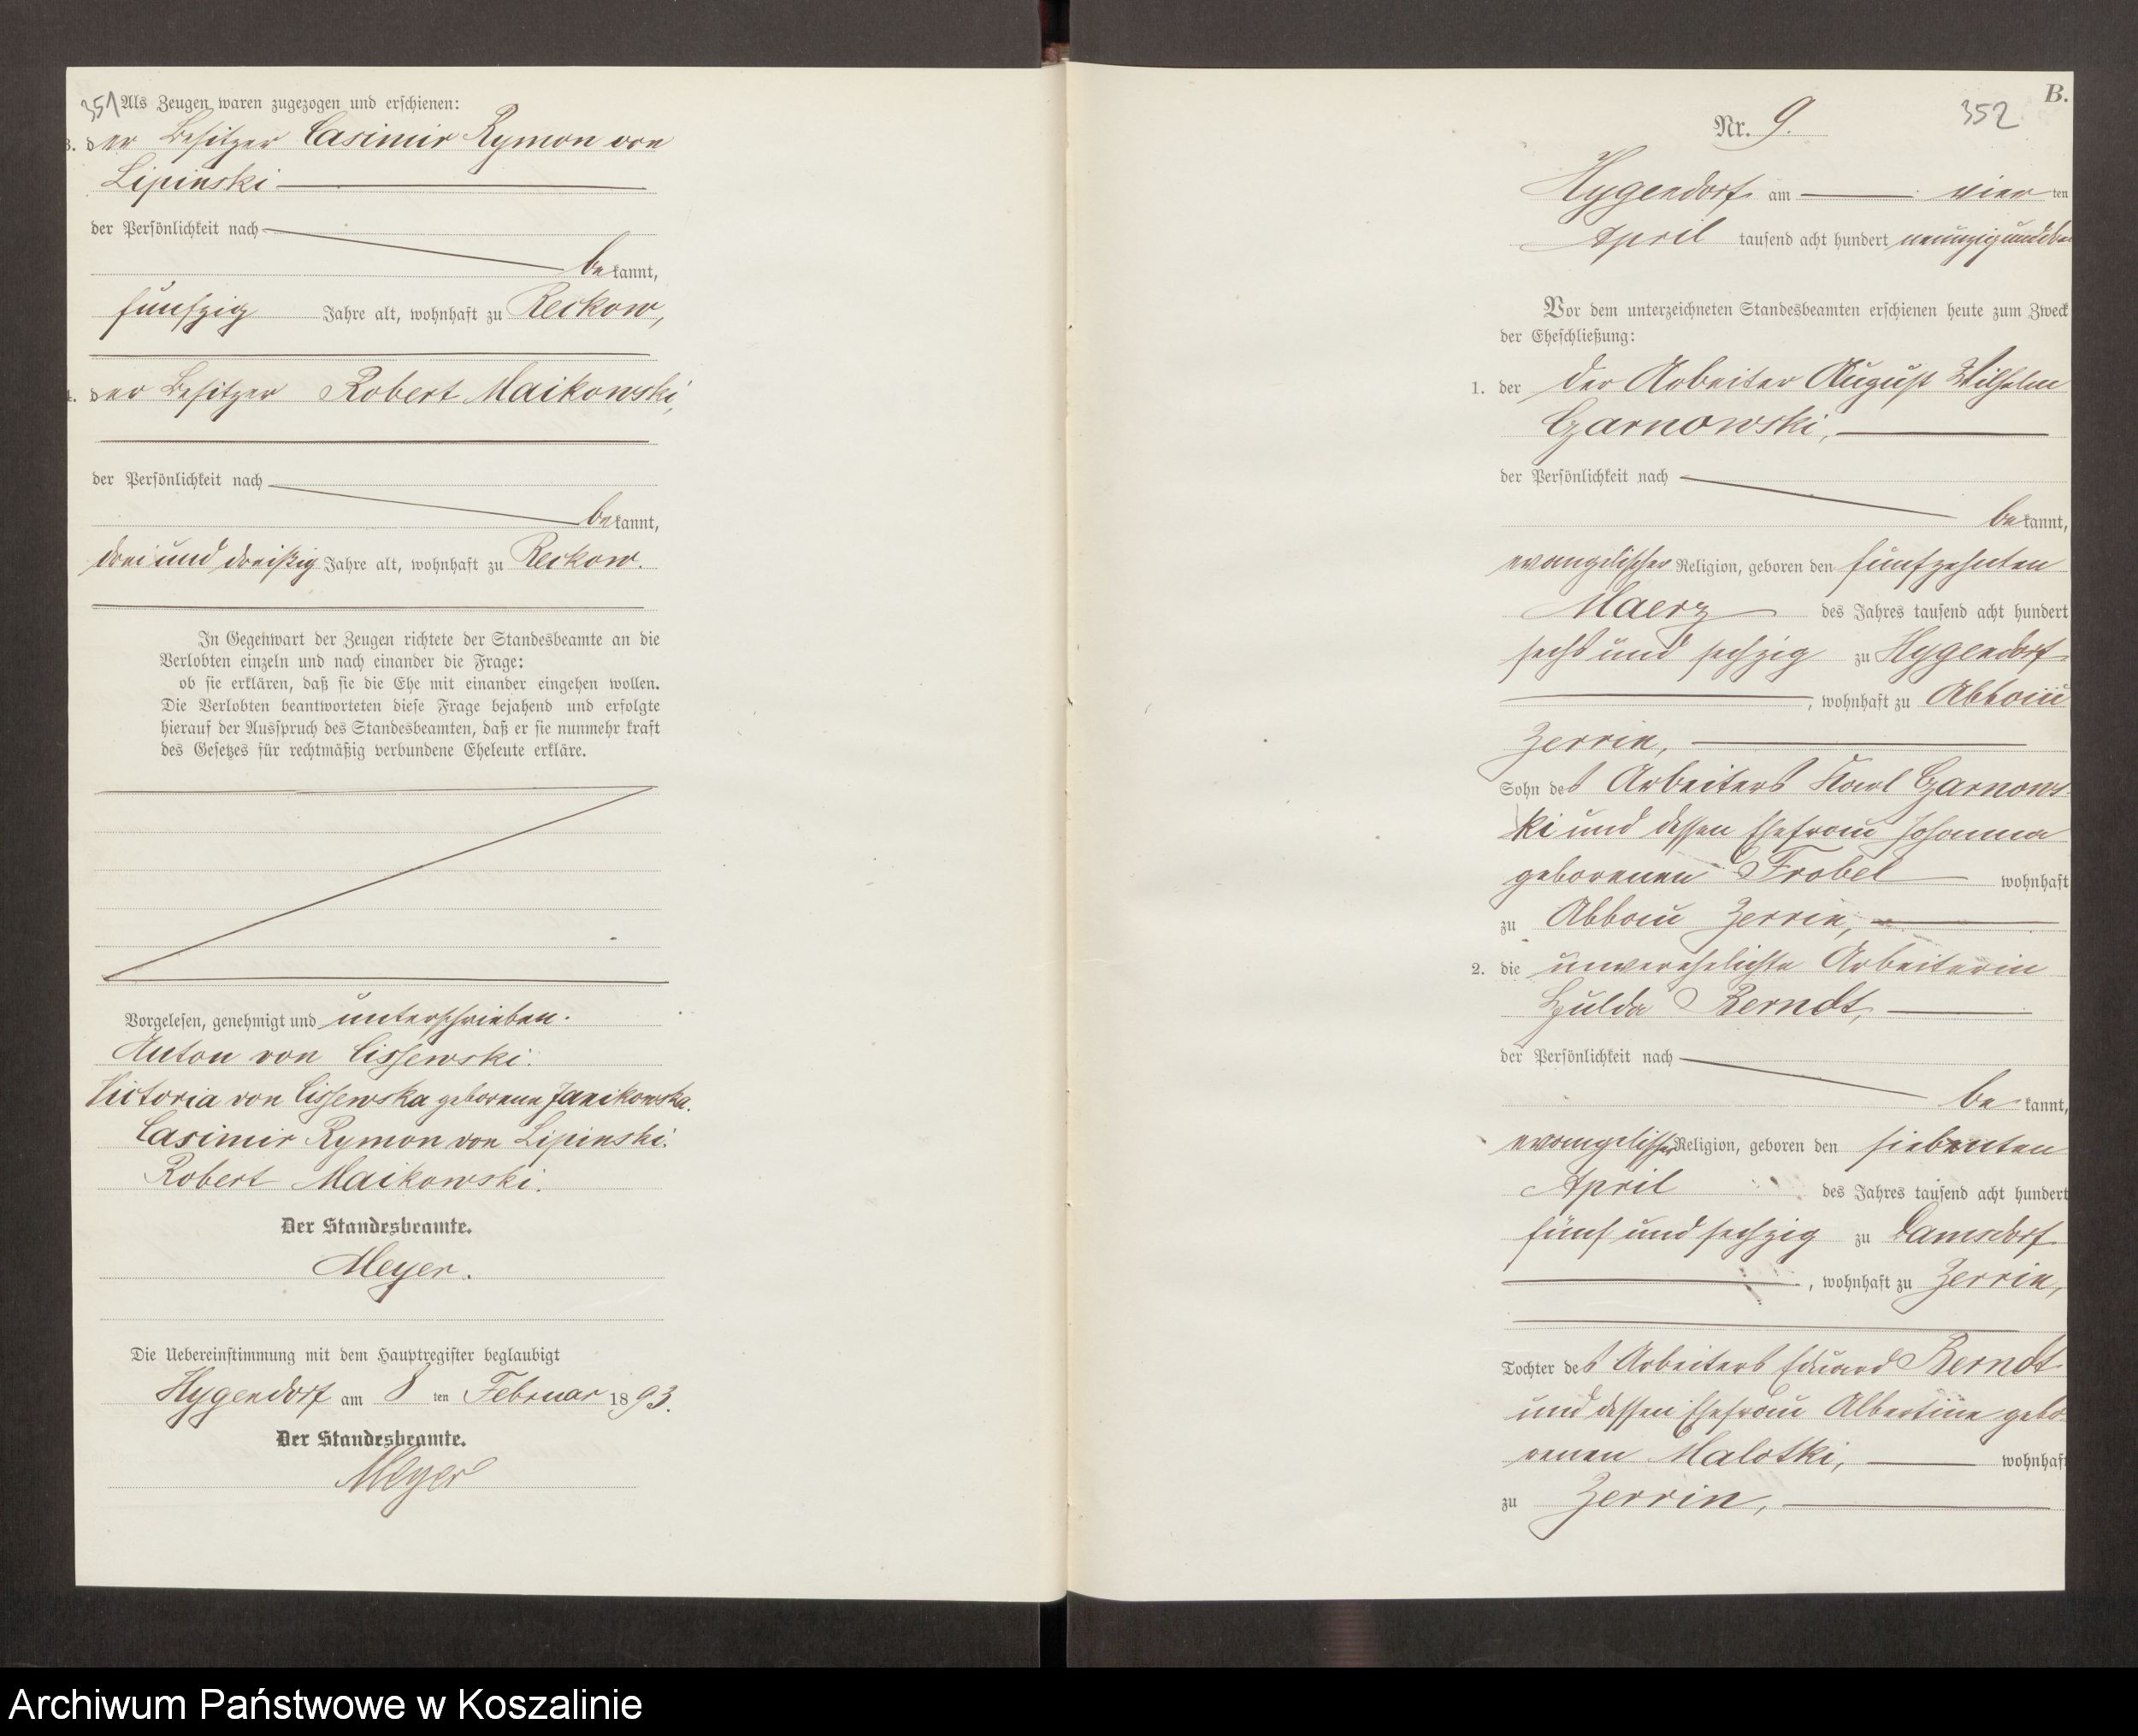 351 Als Zeugen waren zugezogen und erschienen:
3. der Besitzer Casimir Rymon von
Lipinski
der Persönlichkeit nach
bekannt,
fünfzig Jahre alt, wohnhaft zu Reckow,
4. der Besitzer Robert Maikowski,
der Persönlichkeit nach
bekannt,
drei und dreißig Jahre alt, wohnhaft zu Reckow.
In Gegenwart der Zeugen richtete der Standesbeamte an die
Verlobten einzeln und nach einander die Frage:
ob sie erklären, daß sie die Ehe mit einander eingehen wollen.
Die Verlobten beantworteten diese Frage bejahend und erfolgte
hierauf der Ausspruch des Standesbeamten, daß er sie nunmehr kraft
des Gesetzes für rechtmäßig verbundene Eheleute erkläre.
Vorgelesen, genehmigt und unterschrieben.
Anton von Cissewski.
Victoria von Cissewska geborene Janikowska.
Casimir Rymon von Lipinski.
Robert Maikowski.
Der Standesbeamte.
Meyer.
Die Uebereinstimmung mit dem Hauptregister beglaubigt
Hygendorf am 8ten Februar 1893.
Der Standesbeamte.
Meyer
B.
Nr. 9. 352
Hygendorf am vierten
April tausend acht hundert neunzig und drei
Vor dem unterzeichneten Standesbeamten erschienen heute zum Zweck
der Eheschließung:
1. der der Arbeiter August Wilhelm
Czarnowski,
der Persönlichkeit nach
bekannt,
evangelischer Religion, geboren den fünfzehnten
Maerz des Jahres tausend acht hundert
sechs und sechzig zu Hygendorf
, wohnhaft zu Abbau
Zerrin,
Sohn des Arbeiters Karl Czarnows-
ki und dessen Ehefrau Johanna
geborenen Frobel wohnhaft
zu Abbau Zerrin,
2. die unverehelichte Arbeiterin
Hulda Berndt,
der Persönlichkeit nach
bekannt,
evangelischer Religion, geboren den siebenten
April des Jahres tausend acht hundert
fünf und sechzig zu Damsdorf
, wohnhaft zu Zerrin,
Tochter des Arbeiters Eduard Berndt
und dessen Ehefrau Albertine gebo-
renen Malotki, wohnhaft
zu Zerrin,
Archiwum Państwowe w Koszalinie